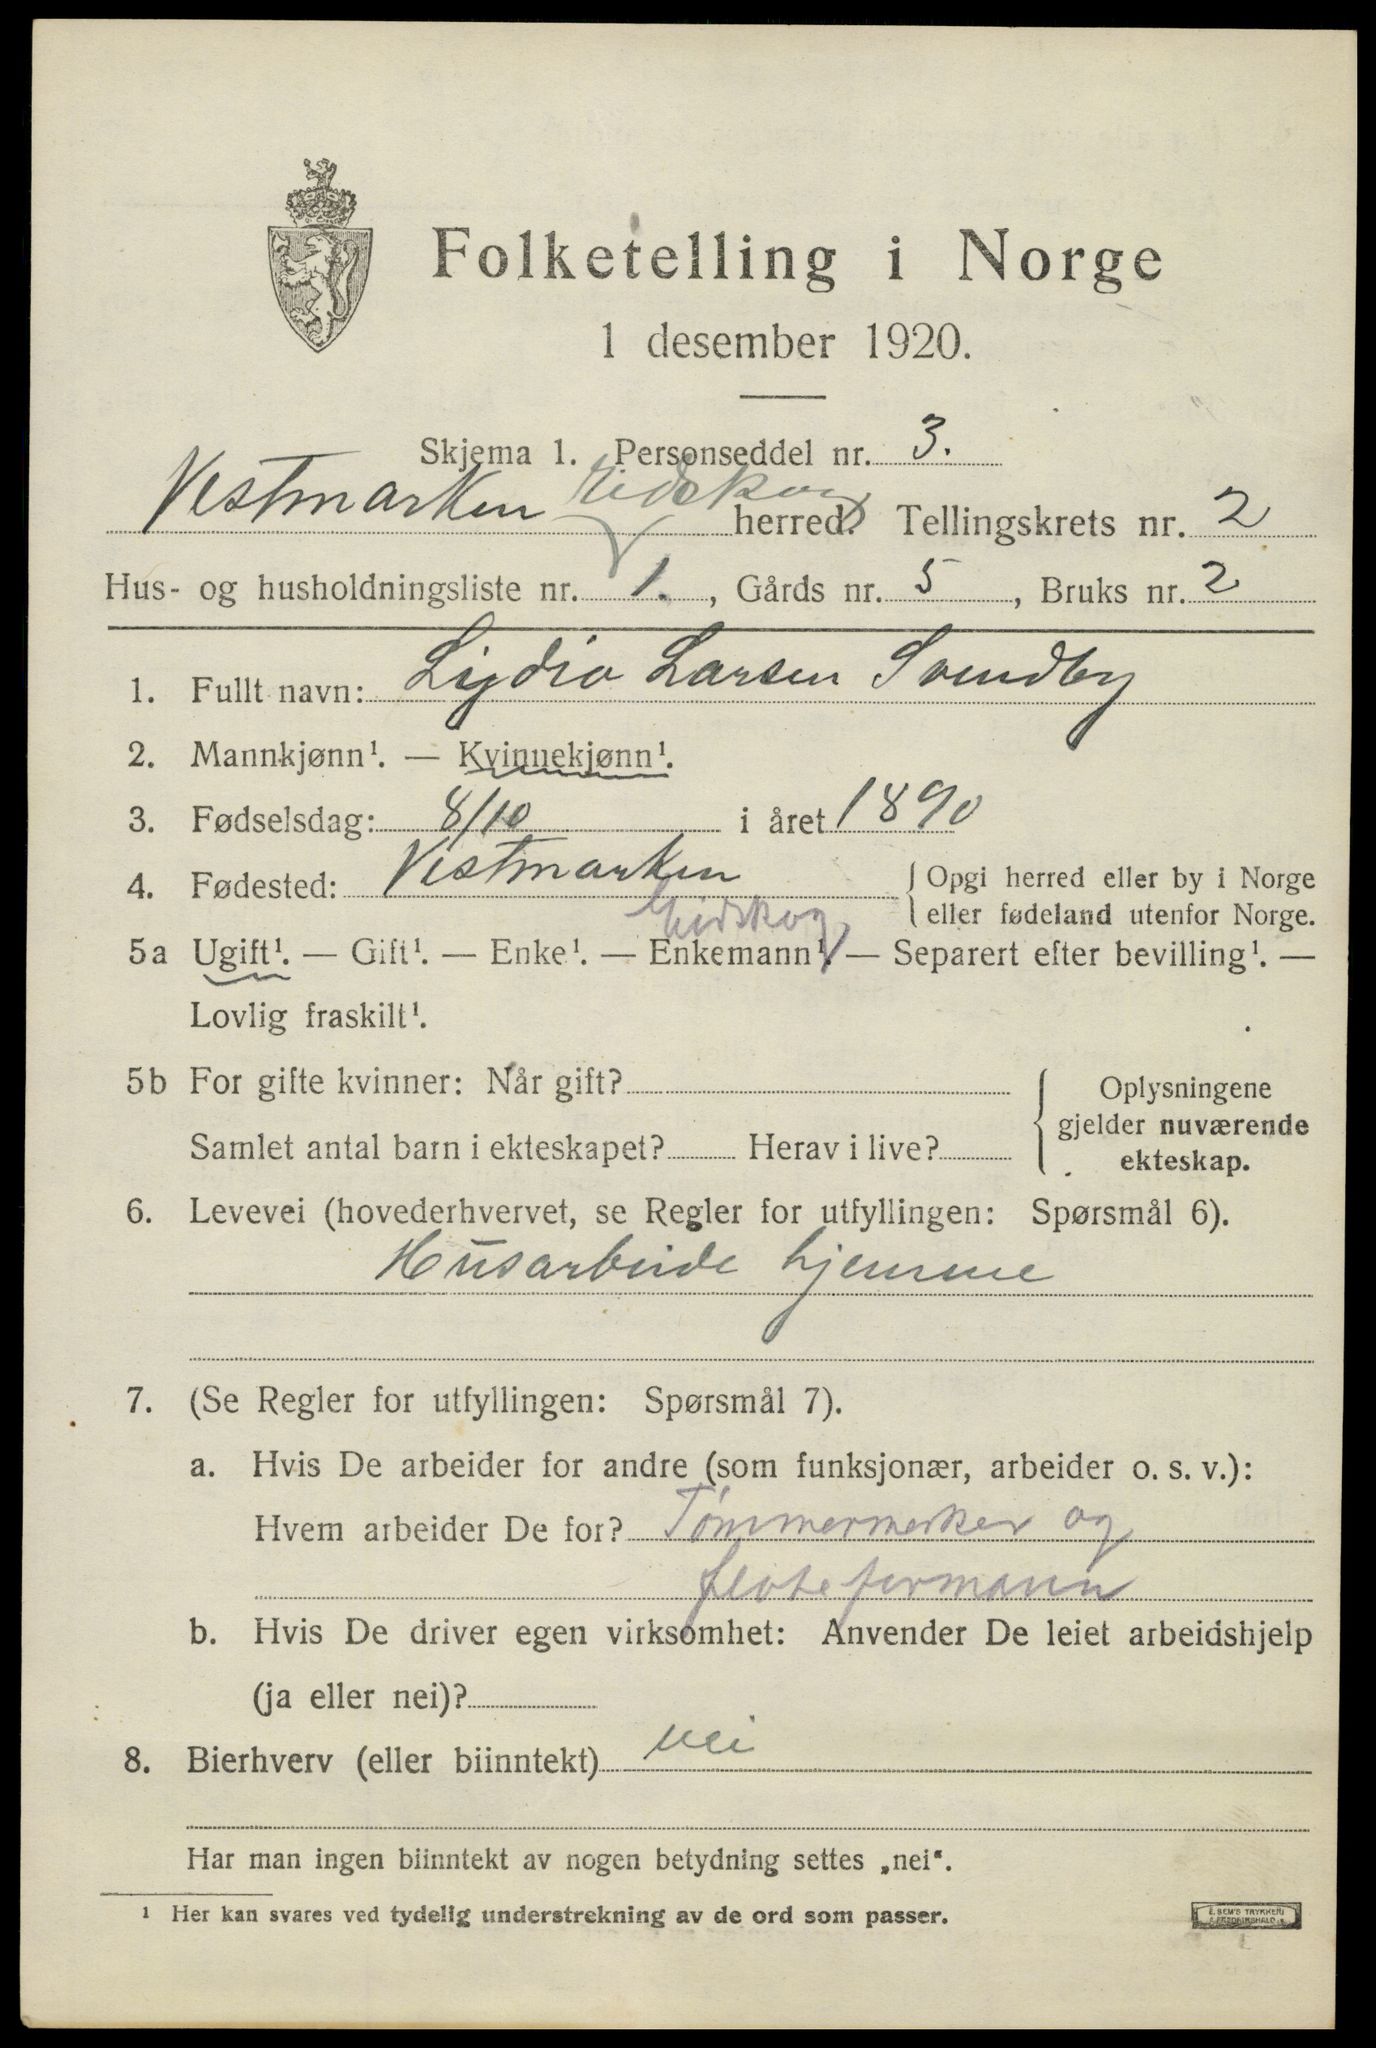 Folketelling i Norge
1 desember 1920.
Skjema 1. Personseddel nr. 3.
Vestmarken Eidskog herred. Tellingskrets nr. 2
Hus- og husholdningsliste nr. 1., Gårds nr. 5, Bruks nr. 2
1. Fullt navn: Lydia Larsen Svendby
2. Mannkjønn¹. — Kvinnekjønn¹.
3. Fødselsdag: 8/10 i året 1890
4. Fødested: Vestmarken { Opgi herred eller by i Norge
Eidskog { eller fødeland utenfor Norge.
5a Ugift¹. — Gift¹. — Enke¹. — Enkemann¹. — Separert efter bevilling¹. —
Lovlig fraskilt¹.
5b For gifte kvinner: Når gift?
Samlet antal barn i ekteskapet? Herav i live?
Oplysningene
gjelder nuværende
ekteskap.
6. Levevei (hovederhvervet, se Regler for utfyllingen: Spørsmål 6).
Husarbeide hjemme
7. (Se Regler for utfyllingen: Spørsmål 7).
a. Hvis De arbeider for andre (som funksjonær, arbeider o. s. v.):
Hvem arbeider De for? Tømmermerker og
fløteformann
b. Hvis De driver egen virksomhet: Anvender De leiet arbeidshjelp
(ja eller nei)?
8. Bierhverv (eller biinntekt) nei
Har man ingen biinntekt av nogen betydning settes „nei“.
¹ Her kan svares ved tydelig understrekning av de ord som passer.
E. SEM'S TRYKKERI
FREDRIKSHALD